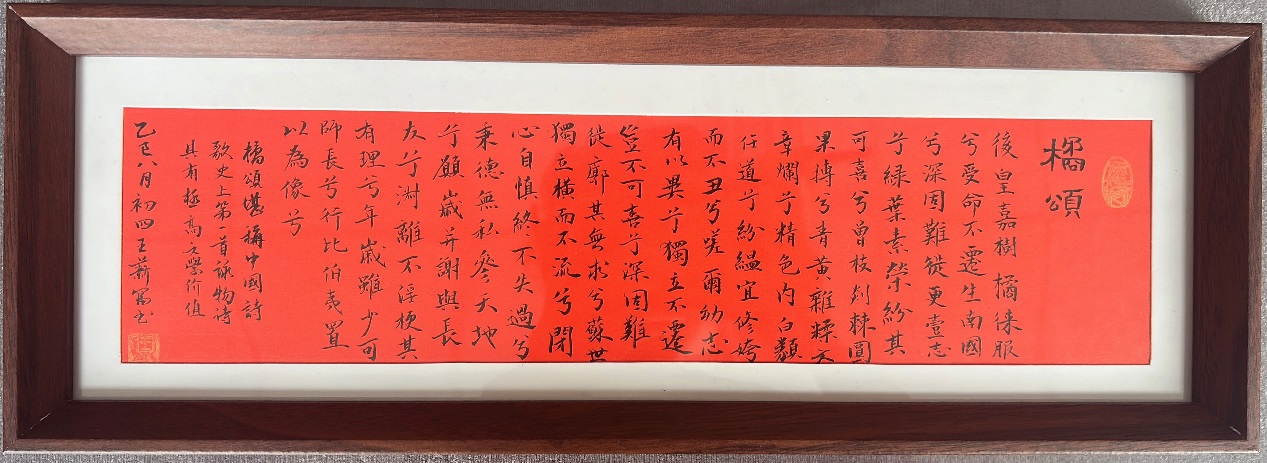 橘頌
後皇嘉樹橘徠服
兮受命不遷生南國
兮深固難徙更壹志
兮綠葉素榮紛其
可喜兮曾枝剡棘圓
果摶兮青黃雜糅文
章爛兮精色內白類
任道兮紛緼宜修姱
而不丑兮嗟爾幼志
有以異兮獨立不遷
豈不可喜兮深固難
徙廓其無求兮蘇世
獨立橫而不流兮閉
心自慎終不失過兮
秉德無私參天地
兮願歲并謝與長
友兮淑離不淫梗其
有理兮年歲雖少可
師長兮行比伯夷置
以為像兮
橘頌堪稱中國詩
歌史上第一首詠物诗
具有極高文學价值
乙巳八月初四王薪寓书